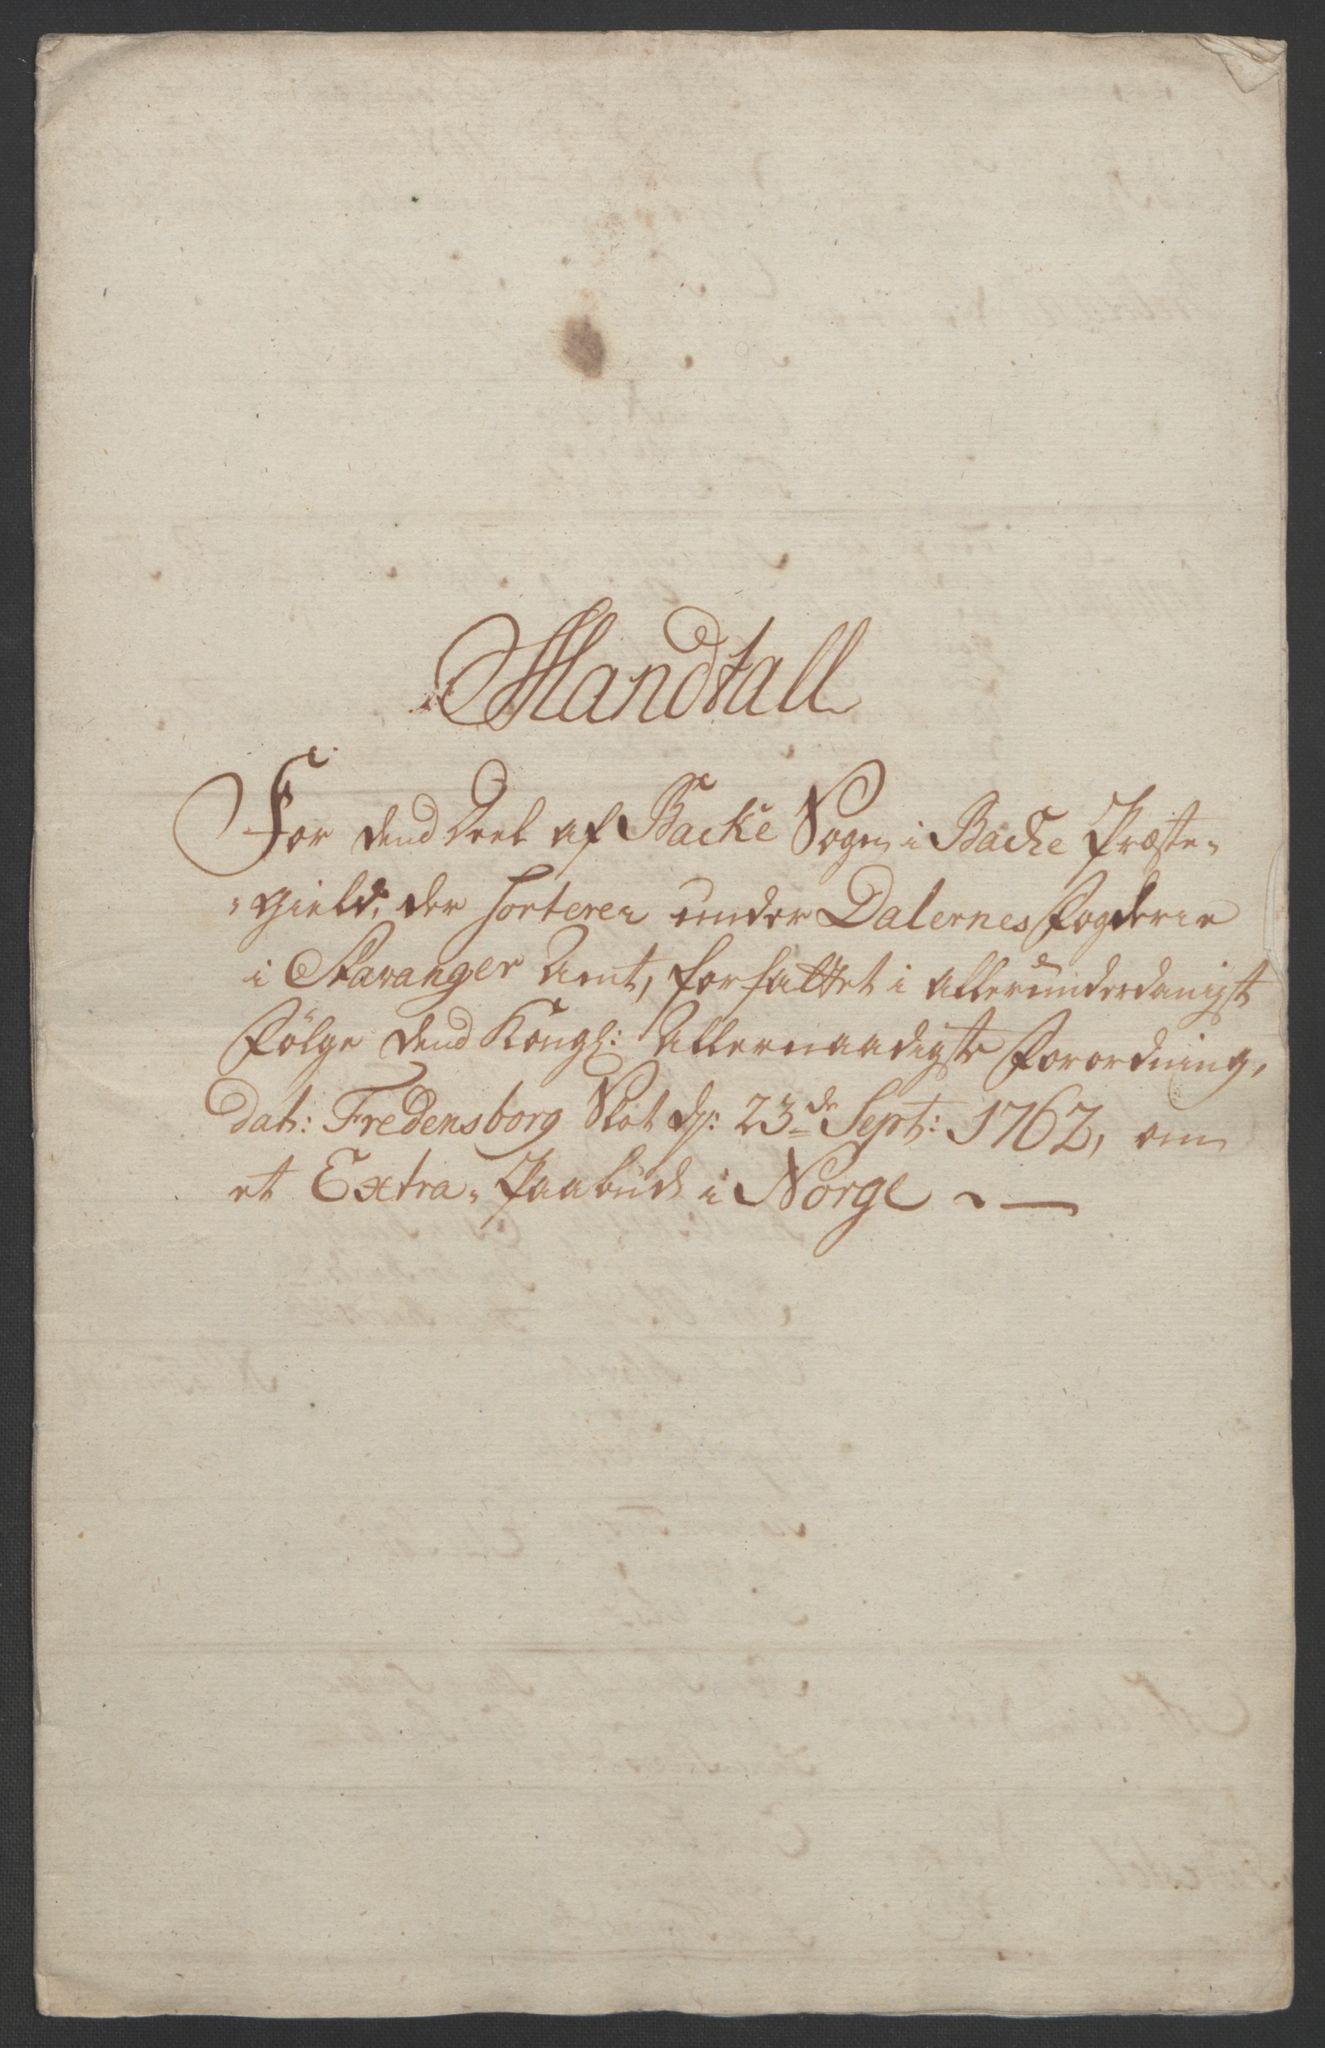 Mandtall
For dend Deel af Backe Sogn i Backe Præste-
-gield, der sorterer under Dalernes Fogderie
i Stavanger Amt, forfattet i allerunderdanigst
Følge dend Kongl: Allernaadigste Forordning,
dat: Fredensborg Slot d: 23de Sept: 1762, om
et Extra-Paabud i Norge